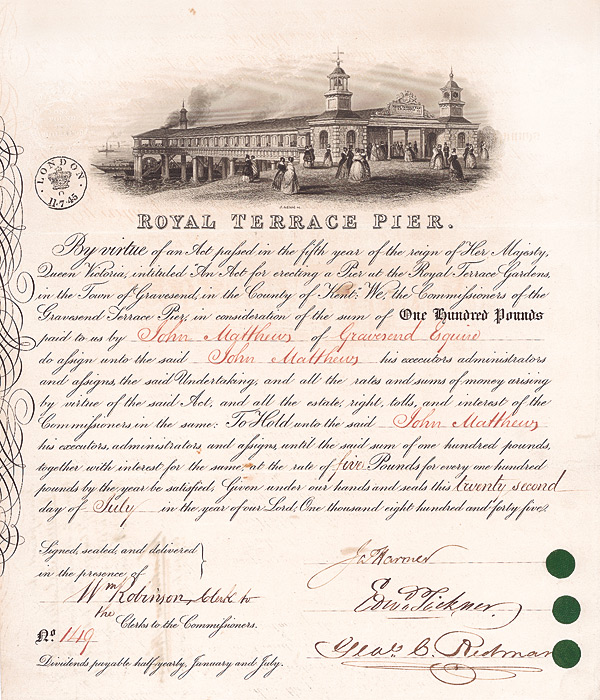 LONDON
11.7.45
ROYAL TERRACE PIER.
By virtue of an Act passed in the fifth year of the reign of Her Majesty,
Queen Victoria, intituled An Act for erecting a Pier at the Royal Terrace Gardens,
in the Town of Gravesend, in the County of Kent: We, the Commissioners of the
Gravesend Terrace Pier, in consideration of the sum of One Hundred Pounds
paid to us by John Matthews of Gravesend Esquire
do assign unto the said John Matthews his executors administrators
and assigns, the said Undertaking, and all the rates and sums of money arising
by virtue of the said Act, and all the estate, right, tolls, and interest of the
Commissioners in the same: To Hold unto the said John Matthews
his executors, administrators, and assigns, until the said sum of one hundred pounds,
together with interest for the same, at the rate of five Pounds for every one hundred
pounds by the year be satisfied. Given under our hands and seals this twenty second
day of July in the year of our Lord, One thousand eight hundred and forty five.
Signed, sealed, and delivered
in the presence of
Wm Robinson, Clerk to
the Clerks to the Commissioners.
No. 149
Dividends payable half-yearly, January and July.
Edwd Tickner
Geo. C. Redman